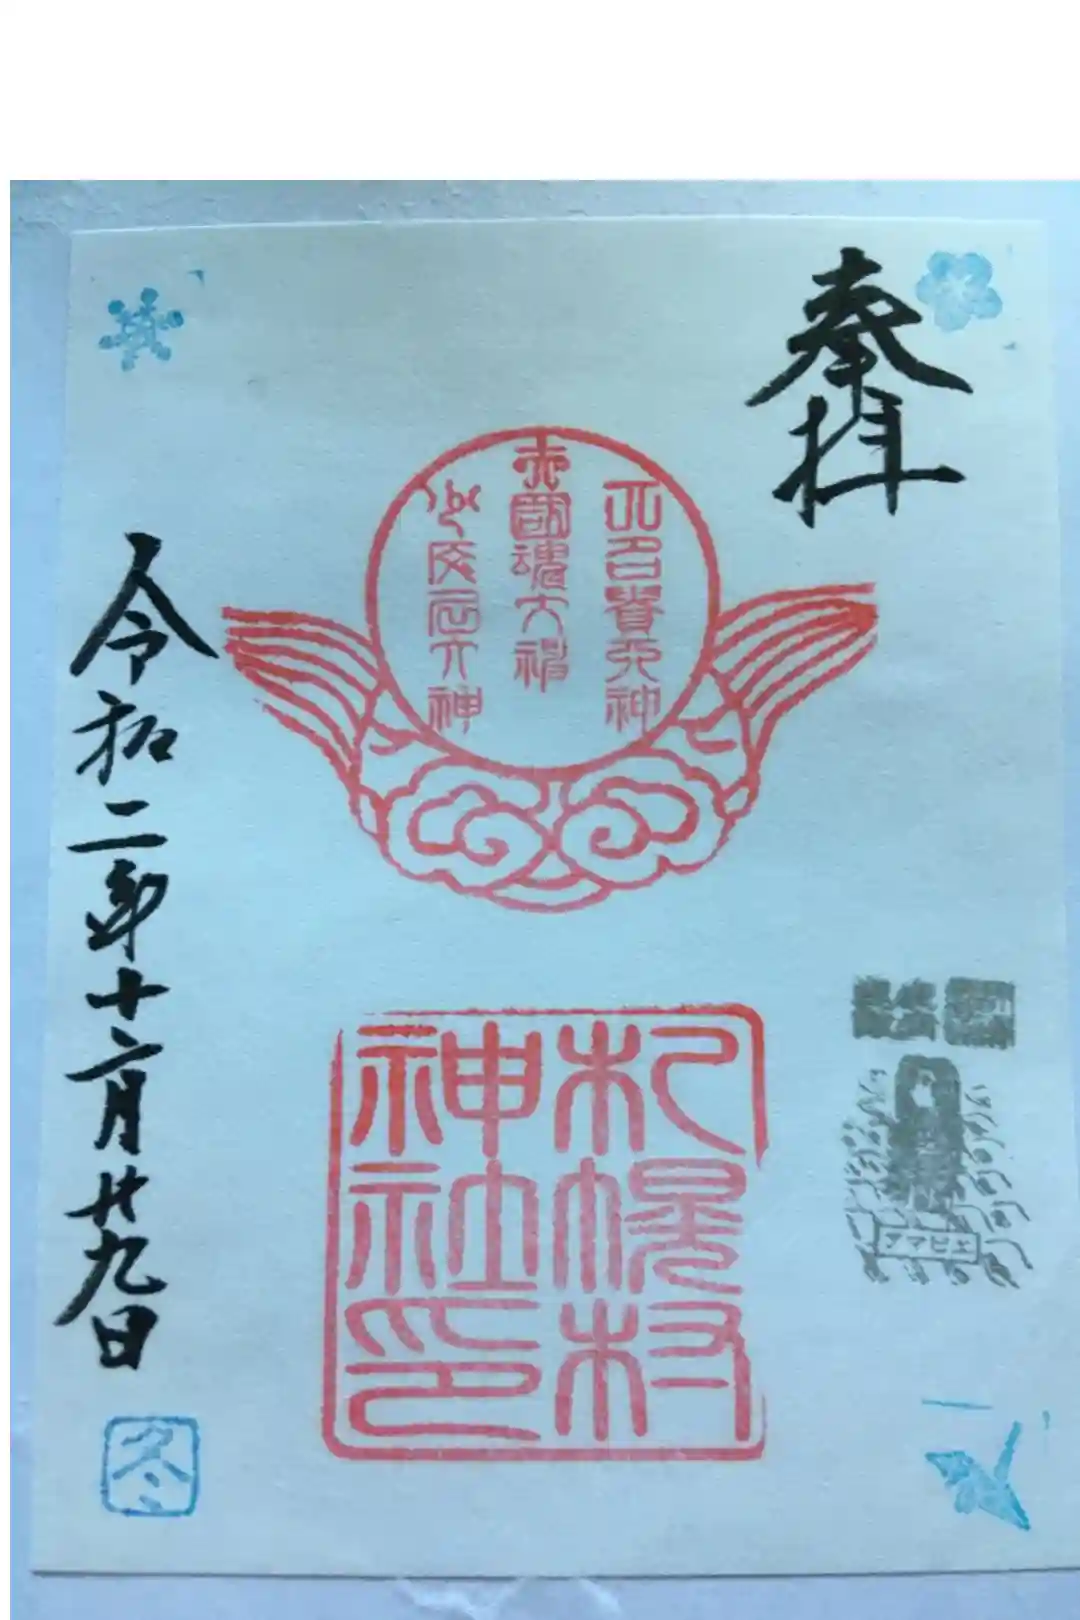 奉拝
大名貴大神
大國魂大神
少彦名大神
札幌村
神社印
アマビエ
令和二年十二月廿九日
冬